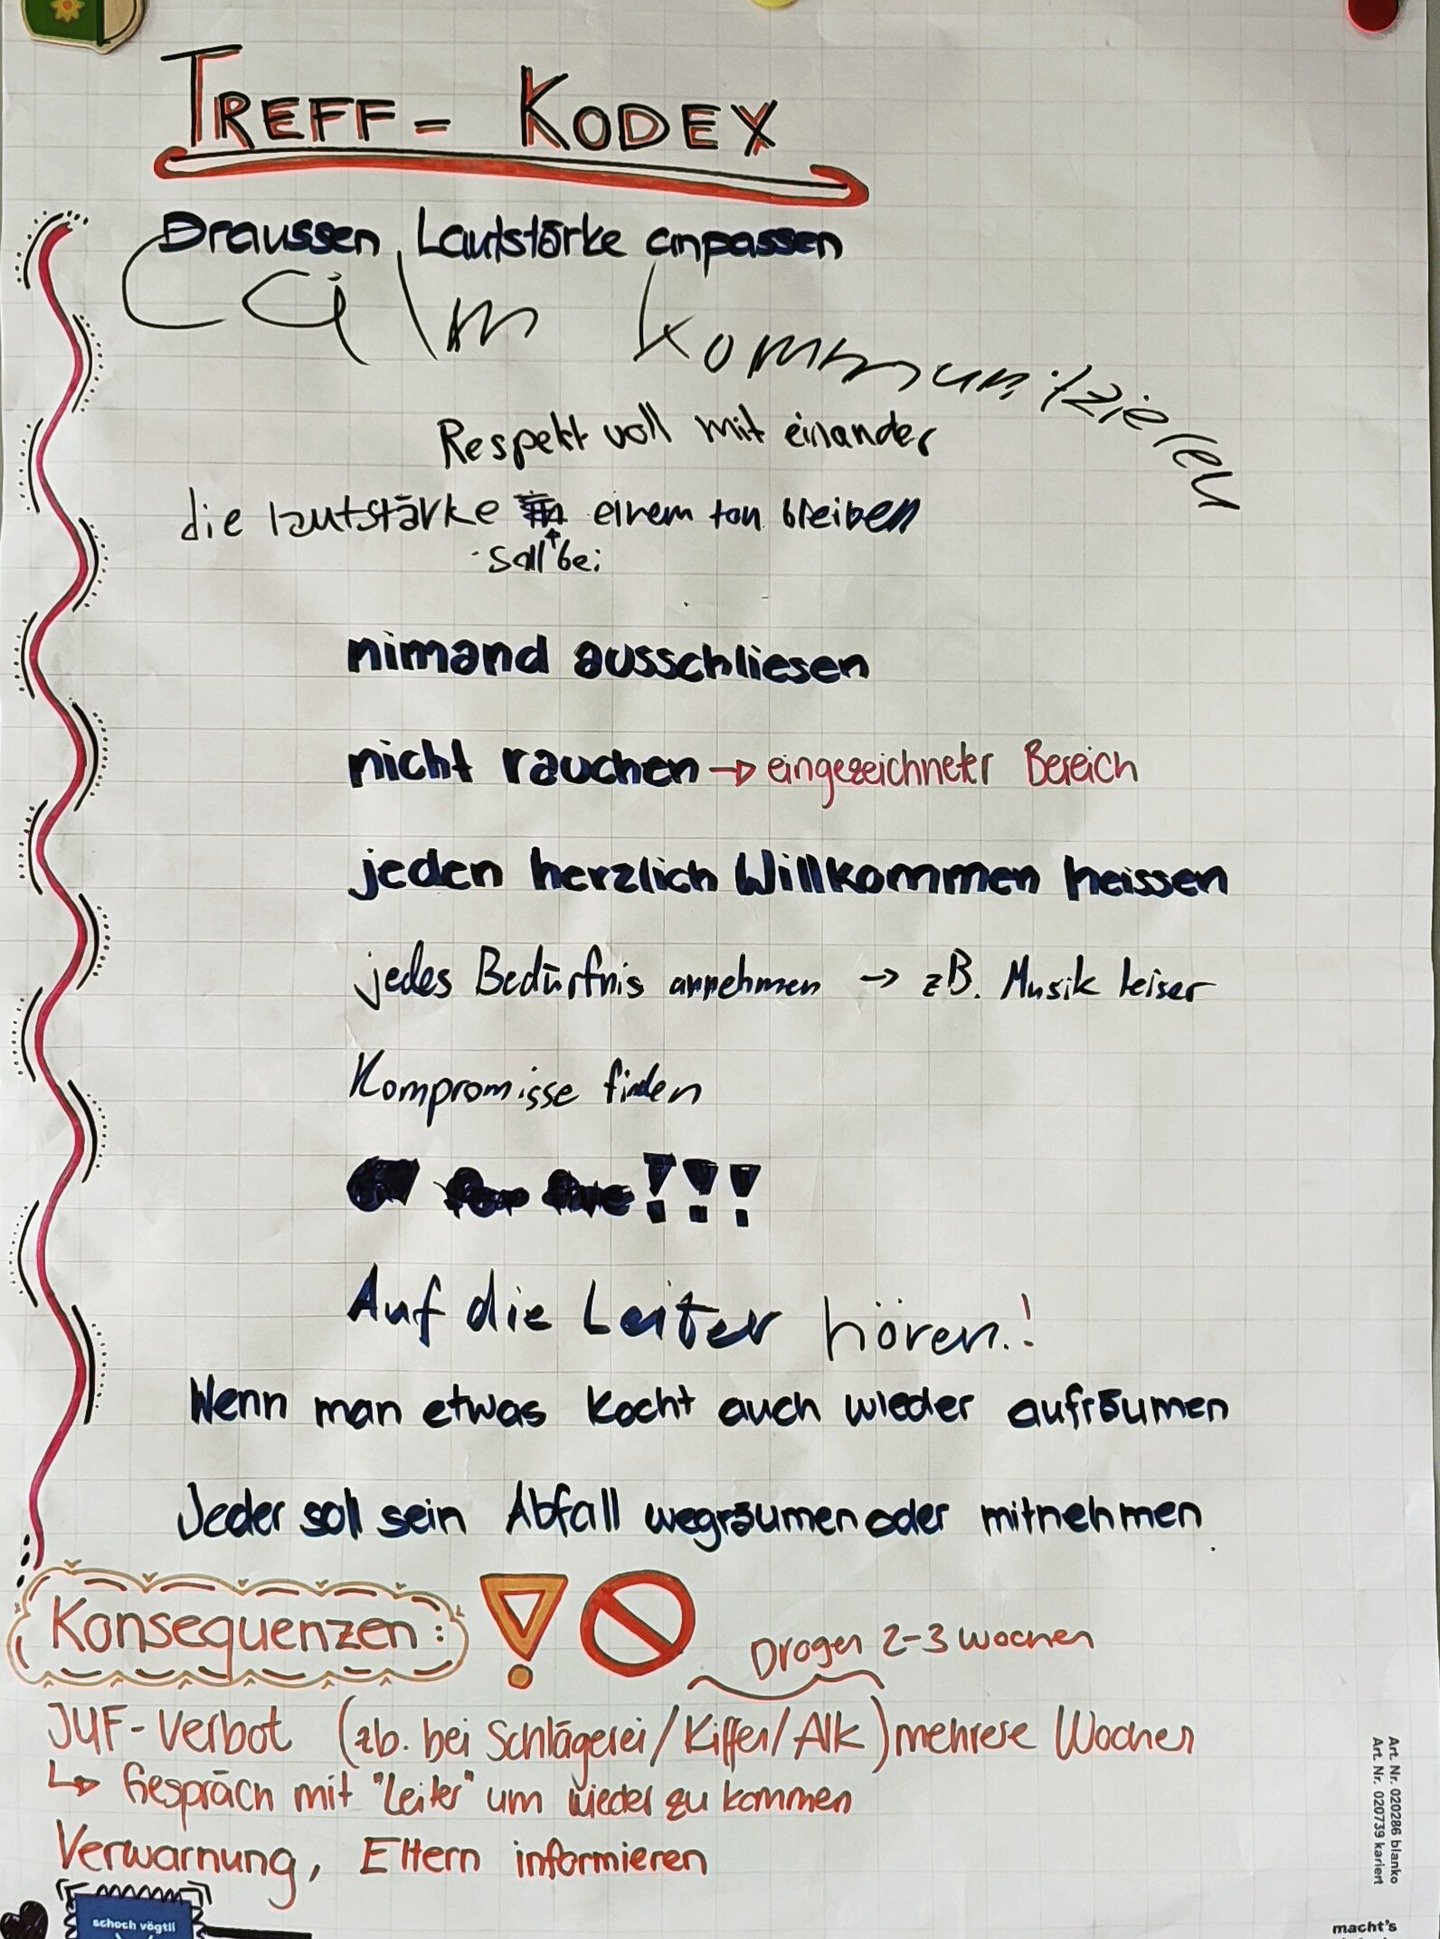 TREFF- KODEX
Draussen Lautstärke anpassen
Calm kommunizieren
Respekt voll mit einander
die lautstärke einem ton bleiben
soll bei
nimand ausschliesen
nicht rauchen → eingezeichneter Bereich
jeden herzlich Willkommen heissen
jedes Bedürfnis annehmen → zB. Musik leiser
Kompromisse finden
!!!
Auf die Leiter hören.!
Wenn man etwas kocht auch wieder aufräumen
Jeder soll sein Abfall wegräumen oder mitnehmen
Konsequenzen:
Drogen 2-3 Wochen
JUF-Verbot (zb. bei Schlägerei/Kiffen/Alk) mehrere Wochen
↳ Gespräch mit "Leiter" um wieder zu kommen
Verwarnung, Eltern informieren
schoch vögtli
Art. Nr. 020286 blanko
Art. Nr. 020739 kariert
macht's